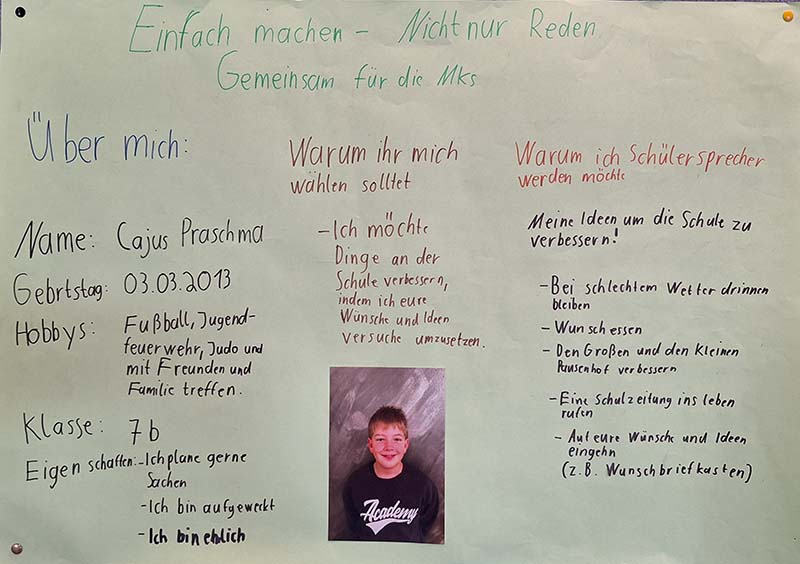 Einfach machen – Nicht nur Reden
Gemeinsam für die Mks
Über mich:
Name: Cajus Praschma
Gebrtstag: 03.03.2013
Hobbys: Fußball, Jugend-
feuerwehr, Judo und
mit Freunden und
Familie treffen.
Klasse: 7b
Eigenschaften: - Ich plane gerne
Sachen
- Ich bin aufgeweckt
- Ich bin ehlich
Warum ihr mich
wählen solltet
- Ich möchte
Dinge an der
Schule verbessern,
indem ich eure
Wünsche und Ideen
versuche umzusetzen.
Academy
Warum ich Schülersprecher
werden möchte
Meine Ideen um die Schule zu
verbessern!
- Bei schlechtem Wetter drinnen
bleiben
- Wunschessen
- Den Großen und den Kleinen
Pausenhof verbessern
- Eine Schulzeitung ins leben
rufen
- Auf eure Wünsche und Ideen
eingehn
(z.B. Wunschbriefkasten)